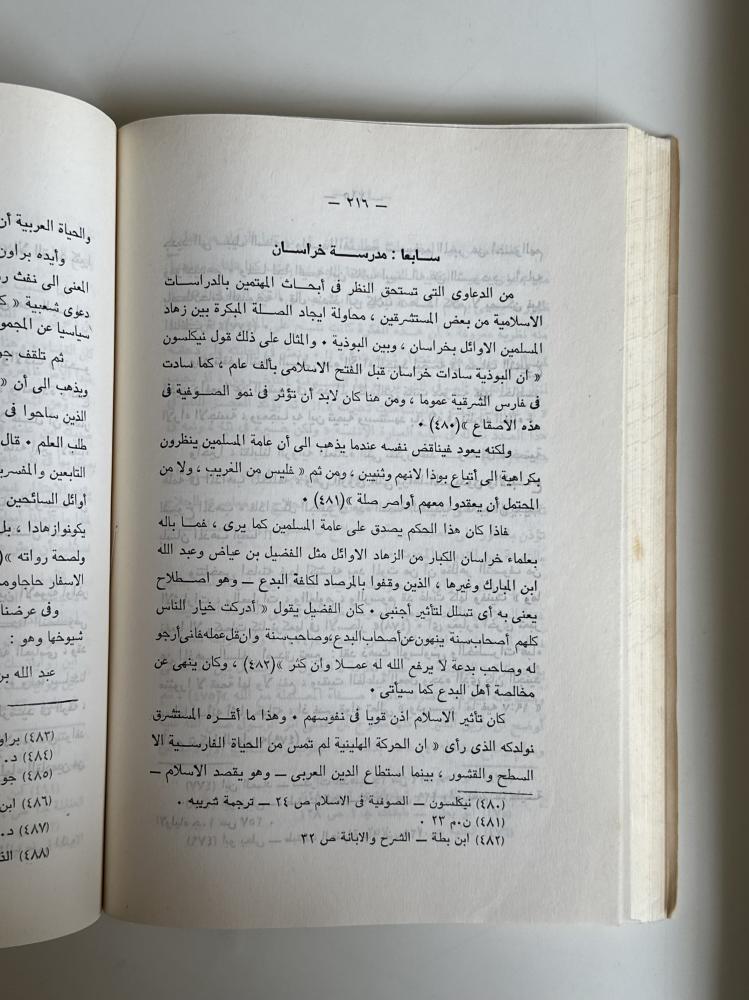 — ٢١٦ —
سـابعا : مدرسـة خراسـان
من الدعاوى التى تستحق النظر فى أبحاث المهتمين بالدراسات
الاسلامية من بعض المستشرقين ، محاولة ايجاد الصلة المبكرة بين زهاد
المسلمين الاوائل بخراسان ، وبين البوذية ٠ والمثال على ذلك قول نيكلسون
« ان البوذية سادات خراسان قبل الفتح الاسلامى بألف عام ، كما سادت
فى فارس الشرقية عموما ، ومن هنا كان لابد أن تؤثر فى نمو الصوفية فى
هذه الاصقاع »(٤٨٠) ٠
ولكنه يعود فيناقض نفسه عندما يذهب الى أن عامة المسلمين ينظرون
بكراهية الى أتباع بوذا لانهم وثنيين ، ومن ثم « فليس من الغريب ، ولا من
المحتمل أن يعقدوا معهم أواصر صلة »(٤٨١) ٠
فاذا كان هذا الحكم يصدق على عامة المسلمين كما يرى ، فمـا باله
بعلماء خراسان الكبار من الزهاد الاوائل مثل الفضيل بن عياض وعبد الله
ابن المبارك وغيرها ، الذين وقفوا بالمرصاد لكافة البدع ــ وهو اصطلاح
يعنى به أى تسلل لتأثير أجنبى ٠ كان الفضيل يقول « أدركت خيار الناس
كلهم أصحاب سنة ينهون عن أصحاب البدع ، وصاحب سنة وان قل عمله فانى أرجو
له وصاحب بدعة لا يرفع الله له عمـلا وان كثر »(٤٨٢) ، وكان ينهى عن
مخالصة أهل البدع كما سيأتى ٠
كان تأثير الاسلام اذن قويا فى نفوسهم ٠ وهذا ما أقـره المستشرق
نولدكه الذى رأى « ان الحركة الهلينية لم تمس من الحياة الفارسـية الا
السطح والقشور ، بينما استطاع الدين العربى ــ وهو يقصد الاسلام ــ
(٤٨٠) نيكلسون ــ الصوفية فى الاسلام ص ٢٤ ــ ترجمة شريبه ٠
(٤٨١) ن٠م ٢٣ ٠
(٤٨٢) ابن بطة ــ الشرح والابانة ص ٣٢
والحياة العربية أن
وأيده براون
المعنى الى نفث
دعوى شعبية «
سياسيا عن
ثم تلقف
ويذهب الى أن «
الذين ساحوا فى
طلب العلم ٠ قال
التابعين
أوائل السائحين
يكونوا زهادا ، بل
ولصحة رواته »
الاسفار
وفى
شيوخها وهو :
عبد الله
(٤٨٣)
(٤٨٤) د٠
(٤٨٥)
(٤٨٦) ابن
(٤٨٧) د٠
(٤٨٨)